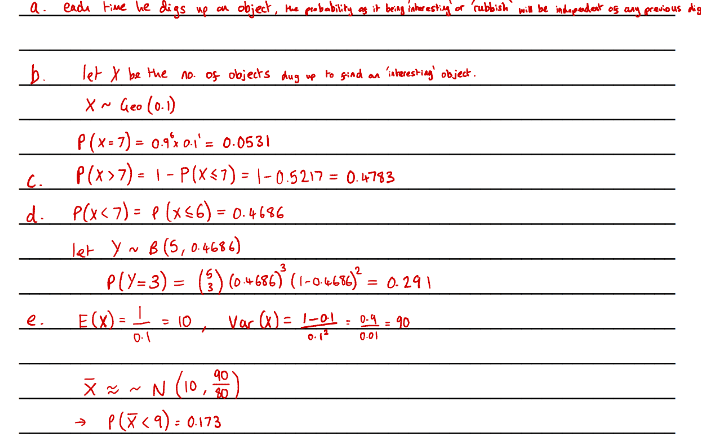 a. each time he digs up an object, the probability of it being interesting or 'rubbish' will be independent of any previous dig
b. let X be the no. of objects dug up to find an 'interesting' object.
X ~ Geo (0.1)
P(X=7) = 0.9⁶ x 0.1¹ = 0.0531
c. P(X>7) = 1 - P(X≤7) = 1 - 0.5217 = 0.4783
d. P(X<7) = P(X≤6) = 0.4686
let Y ~ B(5, 0.4686)
P(Y=3) = (5 3) (0.4686)³ (1-0.4686)² = 0.291
e. E(X) = 1/0.1 = 10, Var(X) = 1-0.1/0.1² = 0.9/0.01 = 90
X̄ ≈ ~ N (10, 90/80)
→ P(X̄ < 9) = 0.173